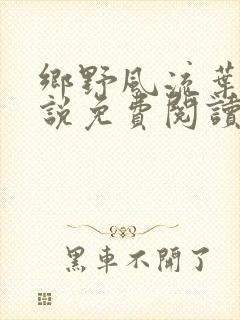 鄉野風流葉
說免費閱讀
黑車不開了